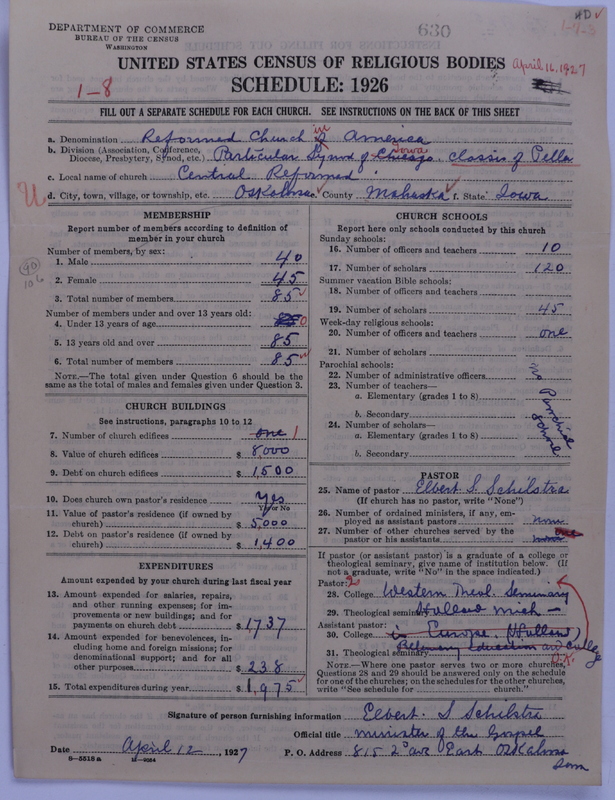 DEPARTMENT OF COMMERCE
BUREAU OF THE CENSUS
WASHINGTON
630
HD
1-4-3
UNITED STATES CENSUS OF RELIGIOUS BODIES
April 16, 1927
SCHEDULE: 1926
1-8
FILL OUT A SEPARATE SCHEDULE FOR EACH CHURCH. SEE INSTRUCTIONS ON THE BACK OF THIS SHEET
a. Denomination Reformed Church in America
b. Division (Association, Conference, Diocese, Presbytery, Synod, etc.) Particular Synod of Chicago Iowa. classis of Pella
c. Local name of church Central Reformed
d. City, town, village, or township, etc. Oskaloosa e. County Mahaska f. State Iowa
MEMBERSHIP
Report number of members according to definition of
member in your church
Number of members, by sex:
1. Male 40
2. Female 45
3. Total number of members 85
Number of members under and over 13 years old:
4. Under 13 years of age 0
5. 13 years old and over 85
6. Total number of members 85
NOTE.—The total given under Question 6 should be the
same as the total of males and females given under Question 3.
CHURCH BUILDINGS
See instructions, paragraphs 10 to 12
7. Number of church edifices one 1
8. Value of church edifices $ 8,000
9. Debt on church edifices $ 1,500
10. Does church own pastor's residence Yes
Yes or No
11. Value of pastor's residence (if owned by
church) $ 5,000
12. Debt on pastor's residence (if owned by
church) $ 1,400
EXPENDITURES
Amount expended by your church during last fiscal year
13. Amount expended for salaries, repairs,
and other running expenses; for im-
provements or new buildings; and for
payments on church debt $ 1737
14. Amount expended for benevolences, in-
cluding home and foreign missions; for
denominational support; and for all
other purposes $ 238
15. Total expenditures during year $ 1,975
CHURCH SCHOOLS
Report here only schools conducted by this church
Sunday schools:
16. Number of officers and teachers 10
17. Number of scholars 120
Summer vacation Bible schools:
18. Number of officers and teachers
19. Number of scholars 45
Week-day religious schools:
20. Number of officers and teachers one
21. Number of scholars
Parochial schools:
22. Number of administrative officers
23. Number of teachers—
a. Elementary (grades 1 to 8)
b. Secondary
24. Number of scholars—
a. Elementary (grades 1 to 8)
b. Secondary
no Parochial school
PASTOR
25. Name of pastor Elbert S. Schilstra
(If church has no pastor, write "None")
26. Number of ordained ministers, if any, em-
ployed as assistant pastors none
27. Number of other churches served by the
pastor or his assistants
If pastor (or assistant pastor) is a graduate of a college or
theological seminary, give name of institution below. (If
not a graduate, write "No" in the space indicated.)
Pastor: 2
28. College Western Theol. Seminary
29. Theological seminary Holland Mich —
Assistant pastor:
30. College in Europe, Holland
31. Theological seminary education and College
O.K.
NOTE.—Where one pastor serves two or more churches,
Questions 28 and 29 should be answered only on the schedule
for one of the churches; on the schedules for the other churches,
write "See schedule for church."
Signature of person furnishing information Elbert. S Schilstra
Official title minister of the Gospel
Date April 12, 1927
P. O. Address 815 2d ave East Oskaloosa
Iowa
8-5518a